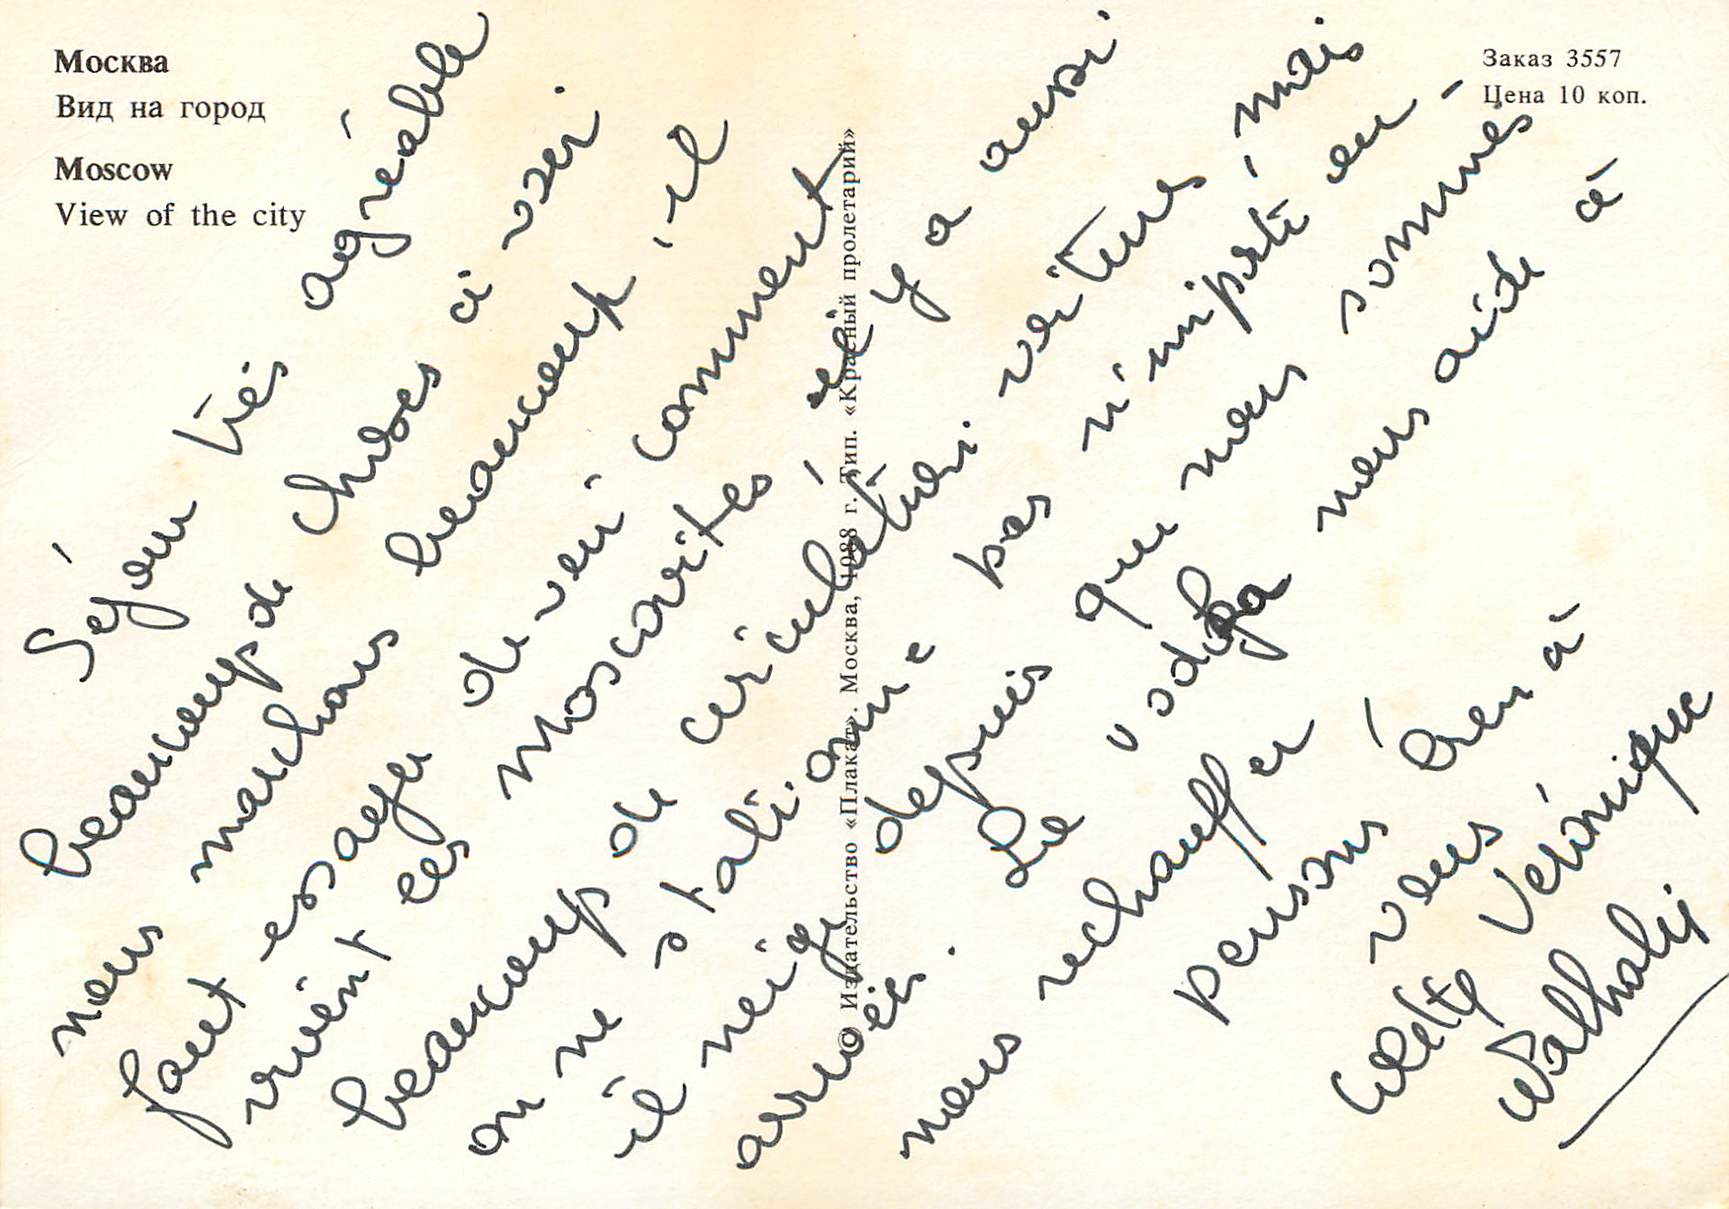 Москва
Вид на город
Moscow
View of the city
Заказ 3557
Цена 10 коп.
© Издательство «Плакат». Москва, 1988 г. Тип. «Красный пролетарий»
Séjour très agréable
beaucoup de choses à voir
nous marchons beaucoup, il
faut essayer de voir comment
vivent ces Moscovites, il y a aussi
beaucoup de circulation. voitures, mais
on ne stationne pas n'importe où -
il neige depuis que nous sommes
arrivées. La vodka nous aide à
nous rechauffer
pensons bien à
vous
Colette Véronique
Walhalij